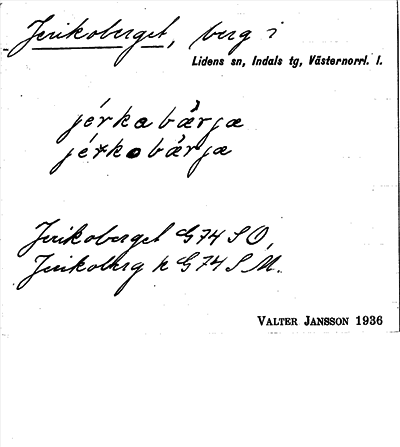 Jerikoberget, berg i
Lidens sn, Indals tg, Västernorrl. l.
jérkobå̀rjæ
jérkobå̀rjæ
Jerikoberget G74 S O,
Jerikoberg h G74 S M.
VALTER JANSSON 1936